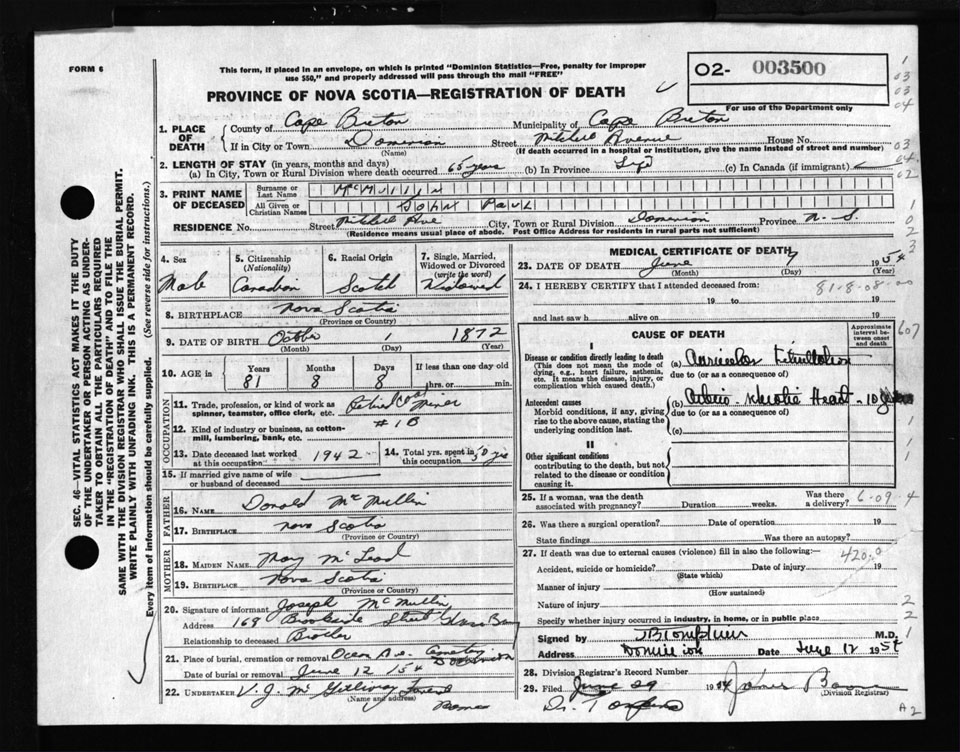 FORM 6
This form, if placed in an envelope, on which is printed "Dominion Statistics—Free, penalty for improper
use $50," and properly addressed will pass through the mail "FREE"
PROVINCE OF NOVA SCOTIA—REGISTRATION OF DEATH
02- 003500
For use of the Department only
1. PLACE OF DEATH
County of Cape Breton Municipality of Cape Breton
If in City or Town Dominion Street Mitchell Avenue House No.
(Name) (If death occurred in a hospital or institution, give the name instead of street and number)
2. LENGTH OF STAY (in years, months and days)
(a) In City, Town or Rural Division where death occurred 65 years (b) In Province Life (c) In Canada (if immigrant)
3. PRINT NAME OF DECEASED
Surname or Last Name McMullin
All Given or Christian Names John Paul
RESIDENCE No. Street Mitchell Ave City, Town or Rural Division Dominion Province N. S.
(Residence means usual place of abode. Post Office Address for residents in rural parts not sufficient)
4. Sex
Male
5. Citizenship (Nationality)
Canadian
6. Racial Origin
Scotch
7. Single, Married, Widowed or Divorced (write the word)
Widowed
8. BIRTHPLACE Nova Scotia
(Province or Country)
9. DATE OF BIRTH October 1 1872
(Month) (Day) (Year)
10. AGE in
Years Months Days If less than one day old
81 8 8 hrs. or min.
OCCUPATION
11. Trade, profession or kind of work as spinner, teamster, office clerk, etc. Retired Coal Miner
12. Kind of industry or business, as cotton-mill, lumbering, bank, etc. #1B
13. Date deceased last worked at this occupation 1942
14. Total yrs. spent in this occupation 50 yrs
15. If married give name of wife or husband of deceased
FATHER
16. NAME Donald McMullin
17. BIRTHPLACE Nova Scotia
(Province or Country)
MOTHER
18. MAIDEN NAME Mary McLeod
19. BIRTHPLACE Nova Scotia
(Province or Country)
20. Signature of informant Joseph McMullin
Address 169 Brookside Street Glace Bay
Relationship to deceased Brother
21. Place of burial, cremation or removal Ocean Ave. Cemetery Dominion
Date of burial or removal June 12 154
22. UNDERTAKER V. J. McGillivray Funeral Home
(Name and address)
MEDICAL CERTIFICATE OF DEATH
23. DATE OF DEATH June 9 1954
(Month) (Day) (Year)
24. I HEREBY CERTIFY that I attended deceased from:
81-8-08-00
19 to 19
and last saw h alive on 19
CAUSE OF DEATH
Approximate interval between onset and death
I
Disease or condition directly leading to death
(This does not mean the mode of dying, e.g., heart failure, asthenia, etc. It means the disease, injury, or complication which caused death.)
(a) Auricular Fibrillation
due to (or as a consequence of)
Antecedent causes
Morbid conditions, if any, giving rise to the above cause, stating the underlying condition last.
(b) Arterio-sclerotic Heart - 10 years
due to (or as a consequence of)
(c)
II
Other significant conditions
contributing to the death, but not related to the disease or condition causing it.
25. If a woman, was the death associated with pregnancy? Duration weeks. Was there a delivery?
6-09-4
26. Was there a surgical operation? Date of operation 19
State findings Was there an autopsy?
27. If death was due to external causes (violence) fill in also the following:—
420.0
Accident, suicide or homicide? Date of injury 19
(State which)
Manner of injury
(How sustained)
Nature of injury
Specify whether injury occurred in industry, in home, or in public place
Signed by M.D.
Address Dominion Date June 12 1954
28. Division Registrar's Record Number
29. Filed June 29 1954
(Division Registrar)
A2
SEC. 46—VITAL STATISTICS ACT MAKES IT THE DUTY
OF THE UNDERTAKER OR PERSON ACTING AS UNDER-
TAKER TO OBTAIN ALL THE PARTICULARS REQUIRED
IN THE "REGISTRATION OF DEATH" AND TO FILE THE
SAME WITH THE DIVISION REGISTRAR WHO SHALL ISSUE THE BURIAL PERMIT.
WRITE PLAINLY WITH UNFADING INK. THIS IS A PERMANENT RECORD.
Every item of information should be carefully supplied. (See reverse side for instructions.)